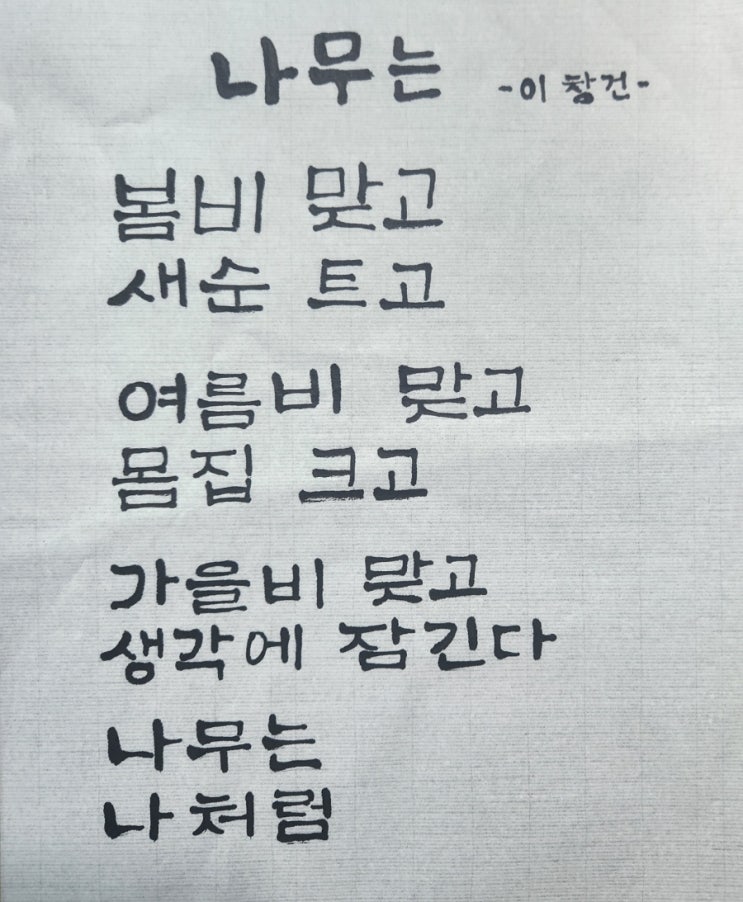 나무는 -이창건-
봄비 맞고
새순 트고
여름비 맞고
몸집 크고
가을비 맞고
생각에 잠긴다
나무는
나처럼